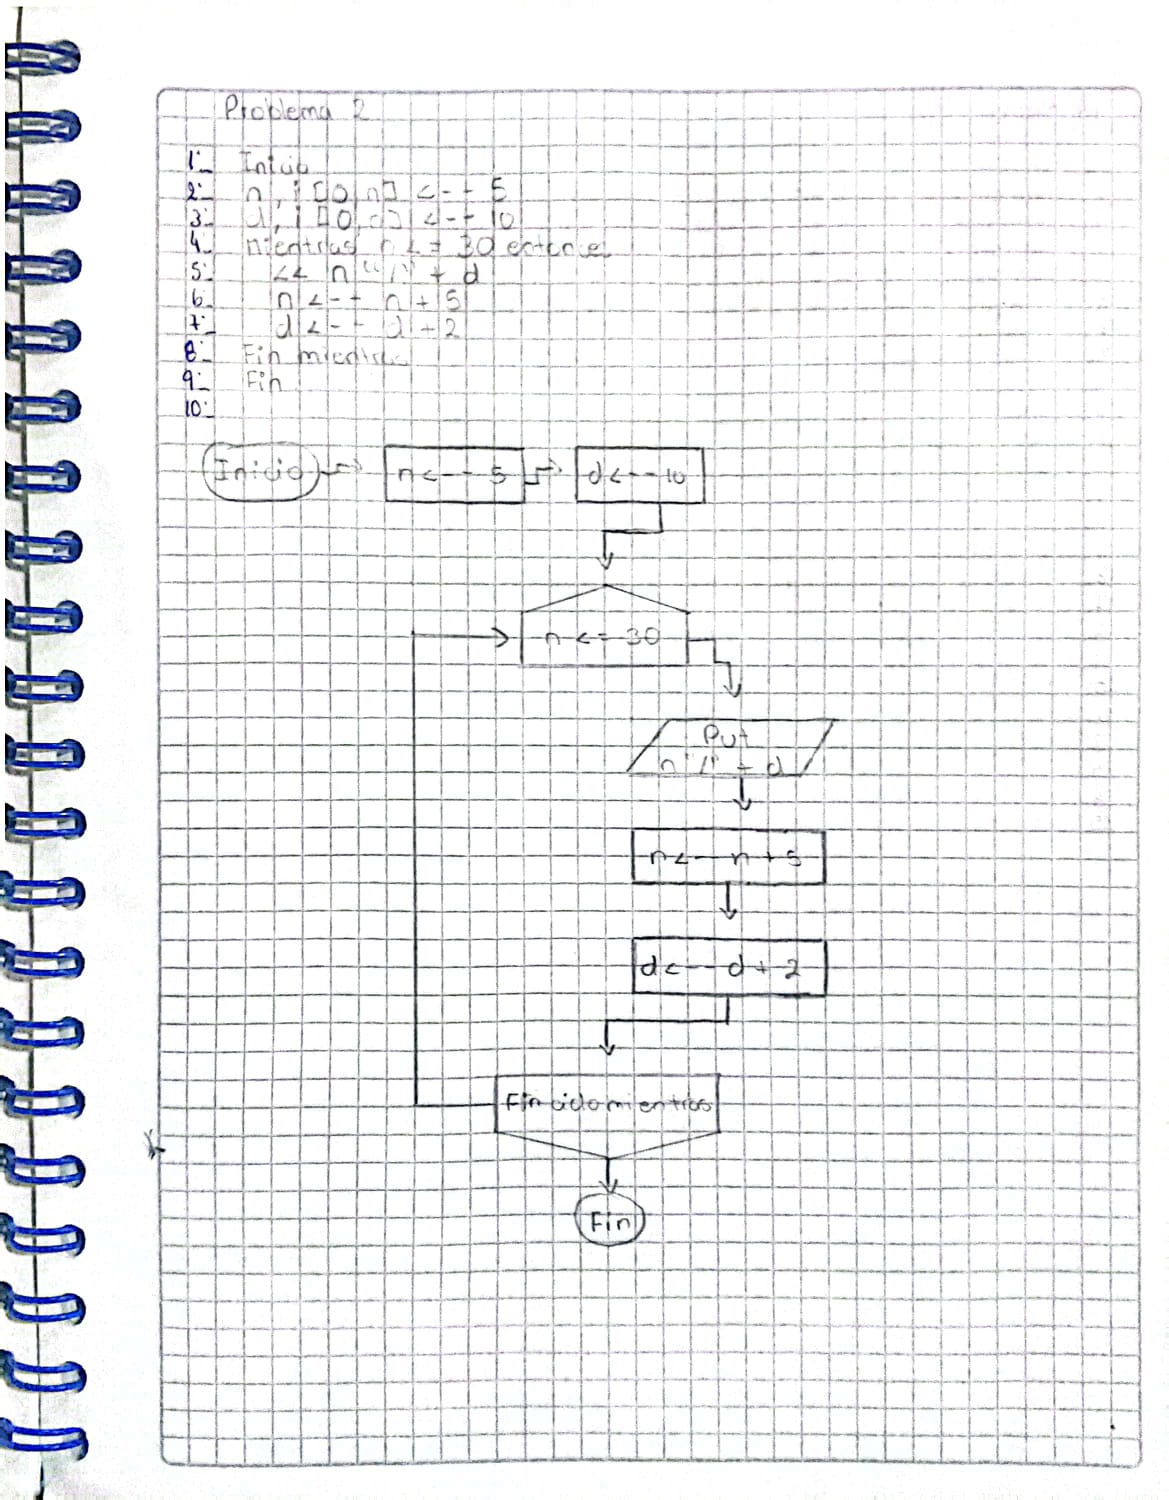 Problema 2
1:_ Inicio
2:_ n, i [0,n] <-- 5
3:_ d, i [0,d] <-- 10
4:_ mientras n <= 30 entonces
5:_ << n "/" + d
6:_ n <-- n + 5
7:_ d <-- d + 2
8:_ Fin mientras
9:_ Fin
10:_
Inicio
n <-- 5
d <-- 10
n <= 30
Put
n "/" + d
n <-- n + 5
d <-- d + 2
Fin ciclo mientras
Fin